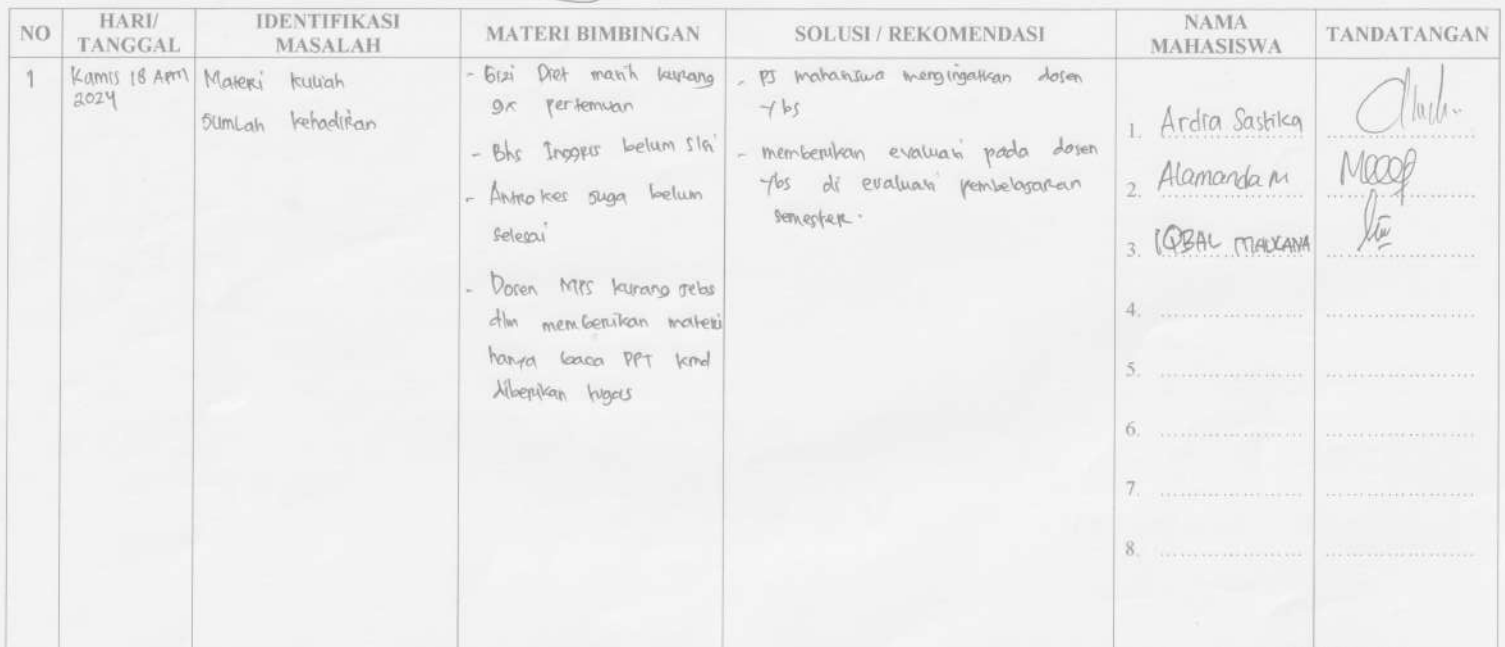 NO
HARI/
TANGGAL
IDENTIFIKASI
MASALAH
MATERI BIMBINGAN
SOLUSI / REKOMENDASI
NAMA
MAHASISWA
TANDATANGAN
1
Kamis 18 April
2024
Materi kuliah
Jumlah kehadiran
- Gizi Diet masih kurang
9x pertemuan
- Bhs Inggris belum
- Antrokes juga belum
selesai
- Dosen MPS kurang jelas
dlm memberikan materi
hanya baca PPT kmd
diberikan tugas
- PJ mahasiswa mengingatkan dosen
ybs
- memberikan evaluasi pada dosen
ybs di evaluasi pembelajaran
semester.
1. Ardra Sastika
2. Alamanda M
3. IQBAL MAULANA
4.
5.
6.
7.
8.